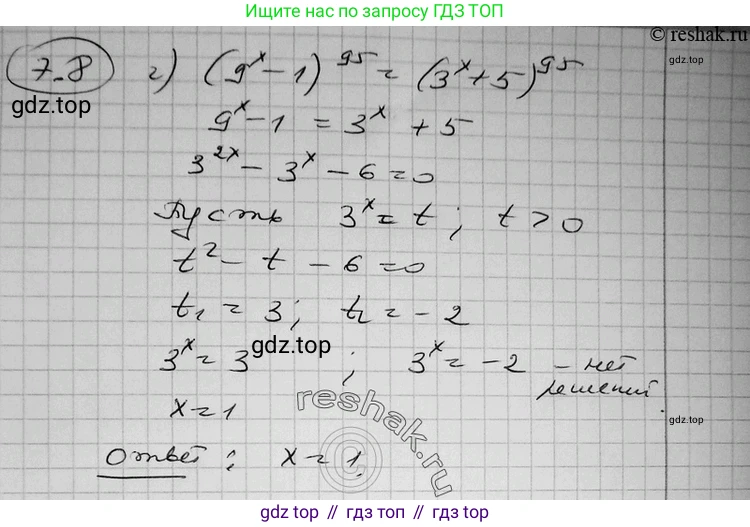 Ищите нас по запросу ГДЗ ТОП
© reshak.ru
7.8 г) (9^x - 1)^95 = (3^x + 5)^95
gdz.top
9^x - 1 = 3^x + 5
3^2x - 3^x - 6 = 0
Пусть 3^x = t ; t > 0
t^2 - t - 6 = 0
t1 = 3 ; t2 = -2
gdz.top
3^x = 3 ; 3^x = -2 - нет
решений.
gdz.top
x = 1
reshak.ru
©
Ответ : x = 1.
gdz.top
gdz.top
gdz топ // гдз топ // gdz.top